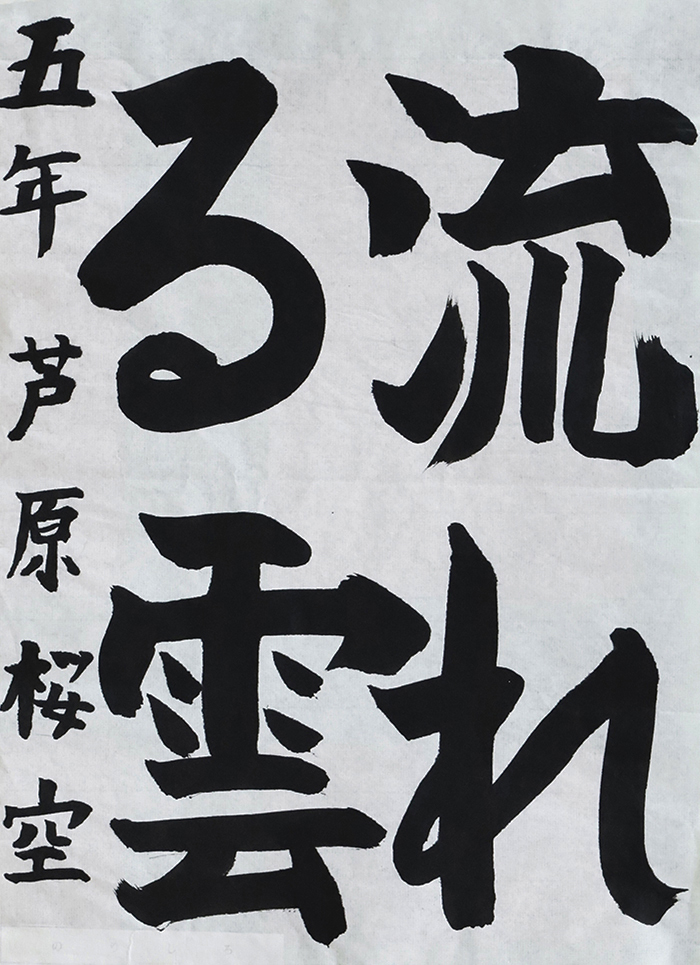 流れ
る雲
五年 芦原桜空